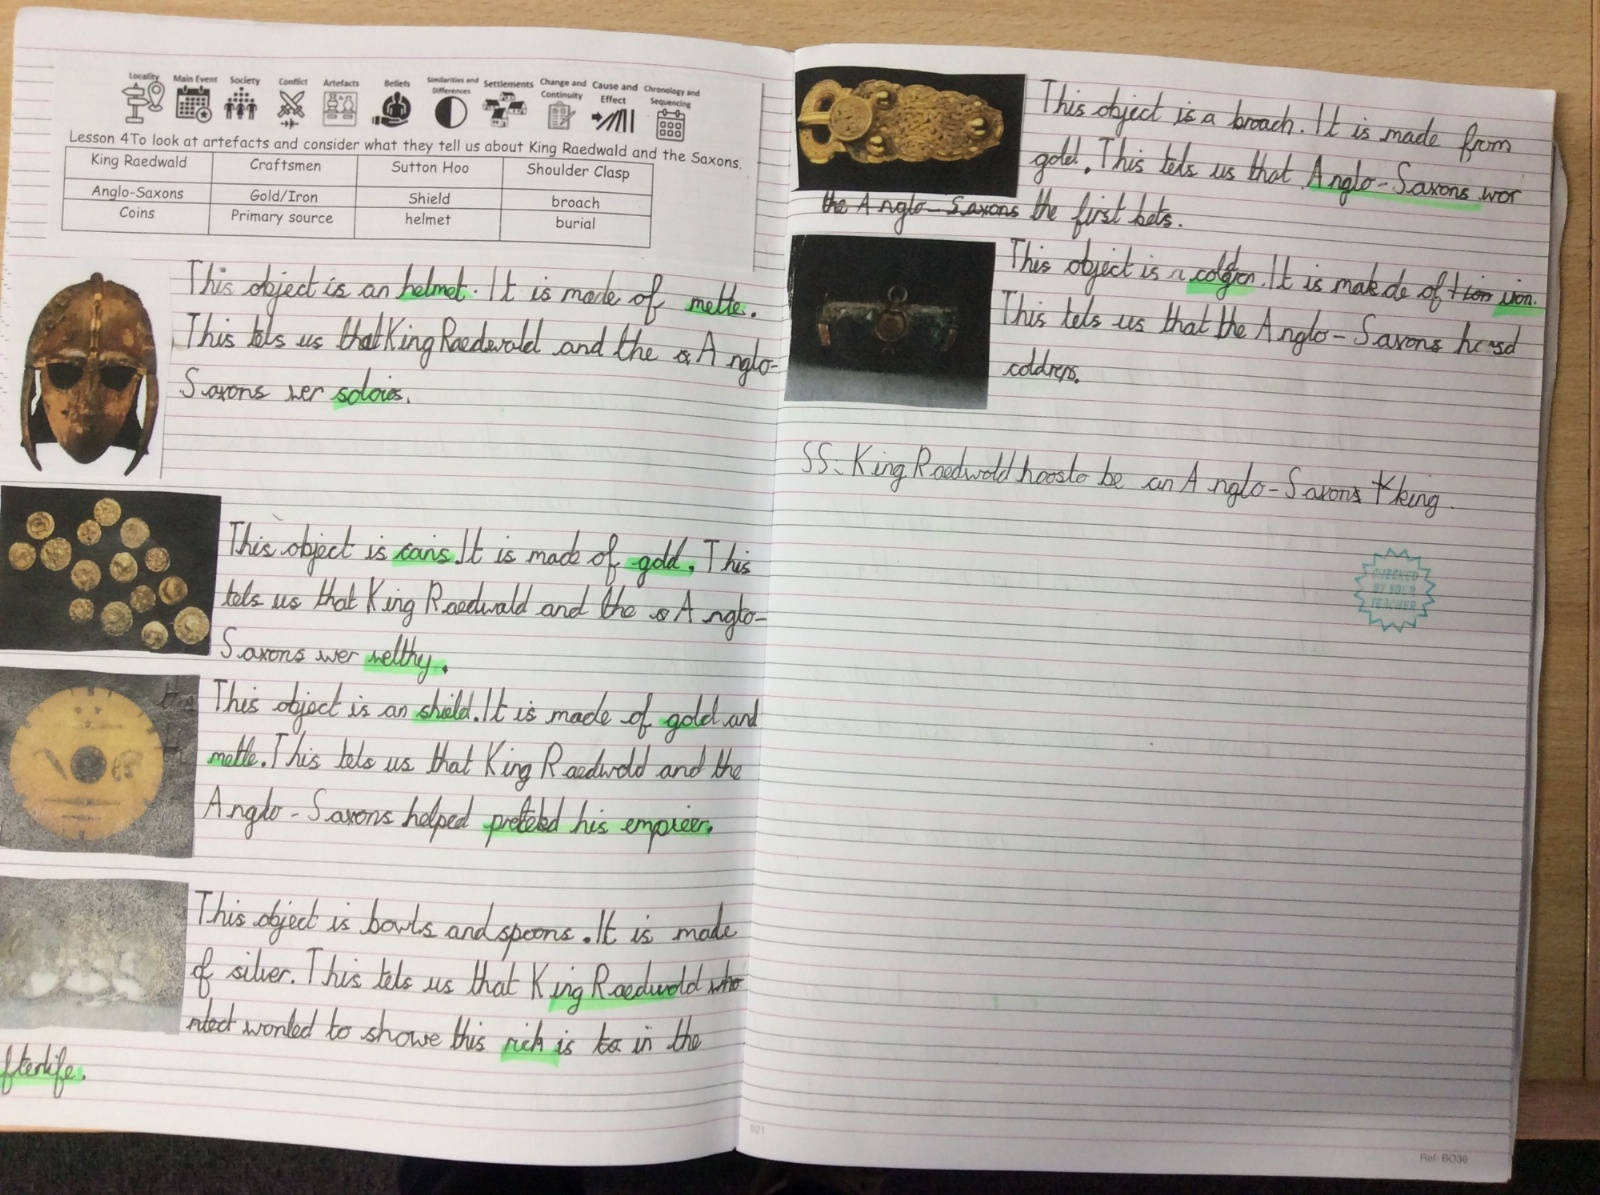 Locality
Main Event
Society
Conflict
Artefacts
Beliefs
Similarities and Differences
Settlements
Change and Continuity
Cause and Effect
Chronology and Sequencing
Lesson 4To look at artefacts and consider what they tell us about King Raedwald and the Saxons.
King Raedwald Craftsmen Sutton Hoo Shoulder Clasp
Anglo-Saxons Gold/Iron Shield broach
Coins Primary source helmet burial
This object is an helmet. It is made of mette.
This tels us that King Raedwald and the Anglo-
Saxons wer soloies.
This object is cans. It is made of gold. This
tels us that King Raedwald and the Anglo-
Saxons wer welthy.
This object is an shield. It is made of gold and
mettle. This tels us that King Raedwold and the
Anglo-Saxons helped his empieer.
This object is bowls and spoons. It is made
of silver. This tels us that King Raedwold who
nted wonted to showe this rich is to in the
fterlife.
This object is a broach. It is made from
gold. This tels us that Anglo-Saxons wor
the Anglo-Saxons the first belts.
This object is a. It is made of iron iron.
This tels us that the Anglo-Saxons had
coldrens.
SS: King Raedwold hoosto be an Anglo-Saxons king.
CHECKED
BY YOUR
TEACHER
621
Ref: BO36